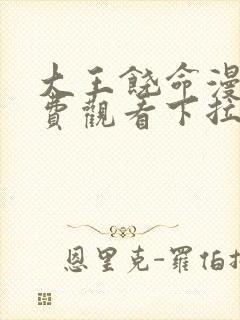 大王饶命漫
费觀看下拉
恩里克-羅伯托